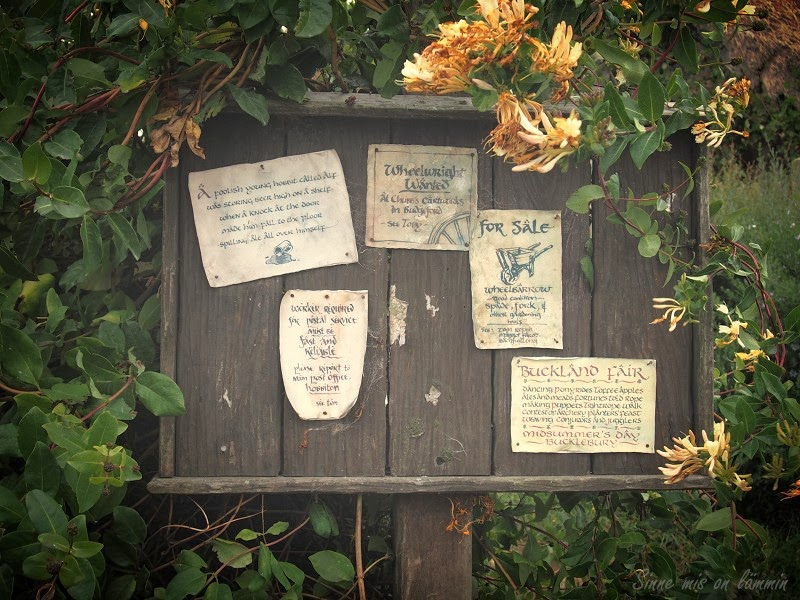 A foolish young hobbit called Alf
was storing beer high on a shelf
when a knock at the door
made him fall to the floor
spilling ale all over himself
Wheelwright
Wanted
At Chubb's Cartworks
in Budgeford
See
For Sale
Wheelbarrow
good condition
spade, fork, &
other gardening
tools
Worker required
for postal service
must be
fast and
reliable
please report to
main post office
hobbiton
Buckland Fair
Dancing Pony rides Toffee apples
Ales and meads Fortunes told Rope
making Puppets Tightrope walk
Contest of archery Planters feast
Weaving Conjurors and jugglers
Midsummer's Day
Bucklebury
Sinne mis on lämmin